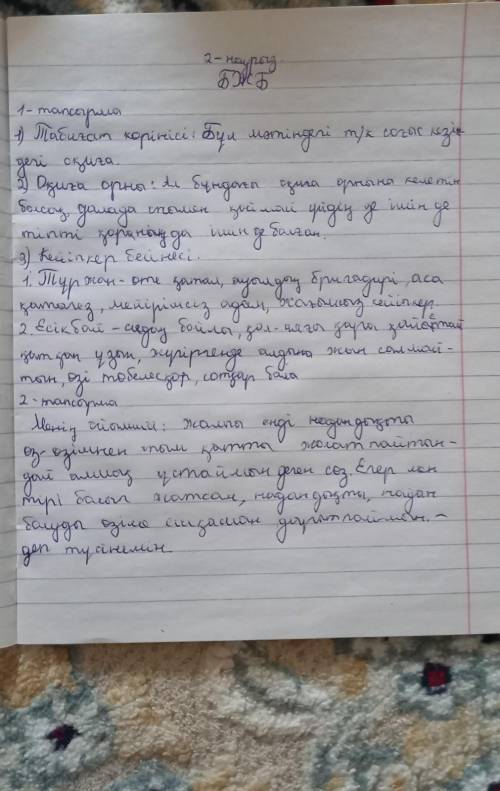 2-наурыз
БЖБ
1-тапсырма
1) Табиғат көрінісі: Бұл мәтіндегі т/к соғыс кезін
дегі оқиға.
2) Оқиға орны: Ал бұндағы оқиға орнына келетін
болсақ, далада сонымен үйдің де ішінде
тіпті қораның да ішінде болған.
3) Кейіпкер бейнесі.
1. Тұржан - өте қатал, ауылдың бригадирі, аса
қатыгез, мейірімсіз адам, жағымсыз кейіпкер.
2. Есікбай - сидаң бойлы, қол-аяғы
ұзын, жүгіргенде алдына жан салмай-
тын, өзі төбелесқор, сотқар бала
2-тапсырма
Менің ойымша: жалпы енді надандықты
өз-өзімнен тым қатты жоғалтпайтын-
дай ұстаймын деген сөз. Егер мен
тірі болып жатсам, надандықты, надан
болуды өзіме ешқашан -
деп түсінемін.